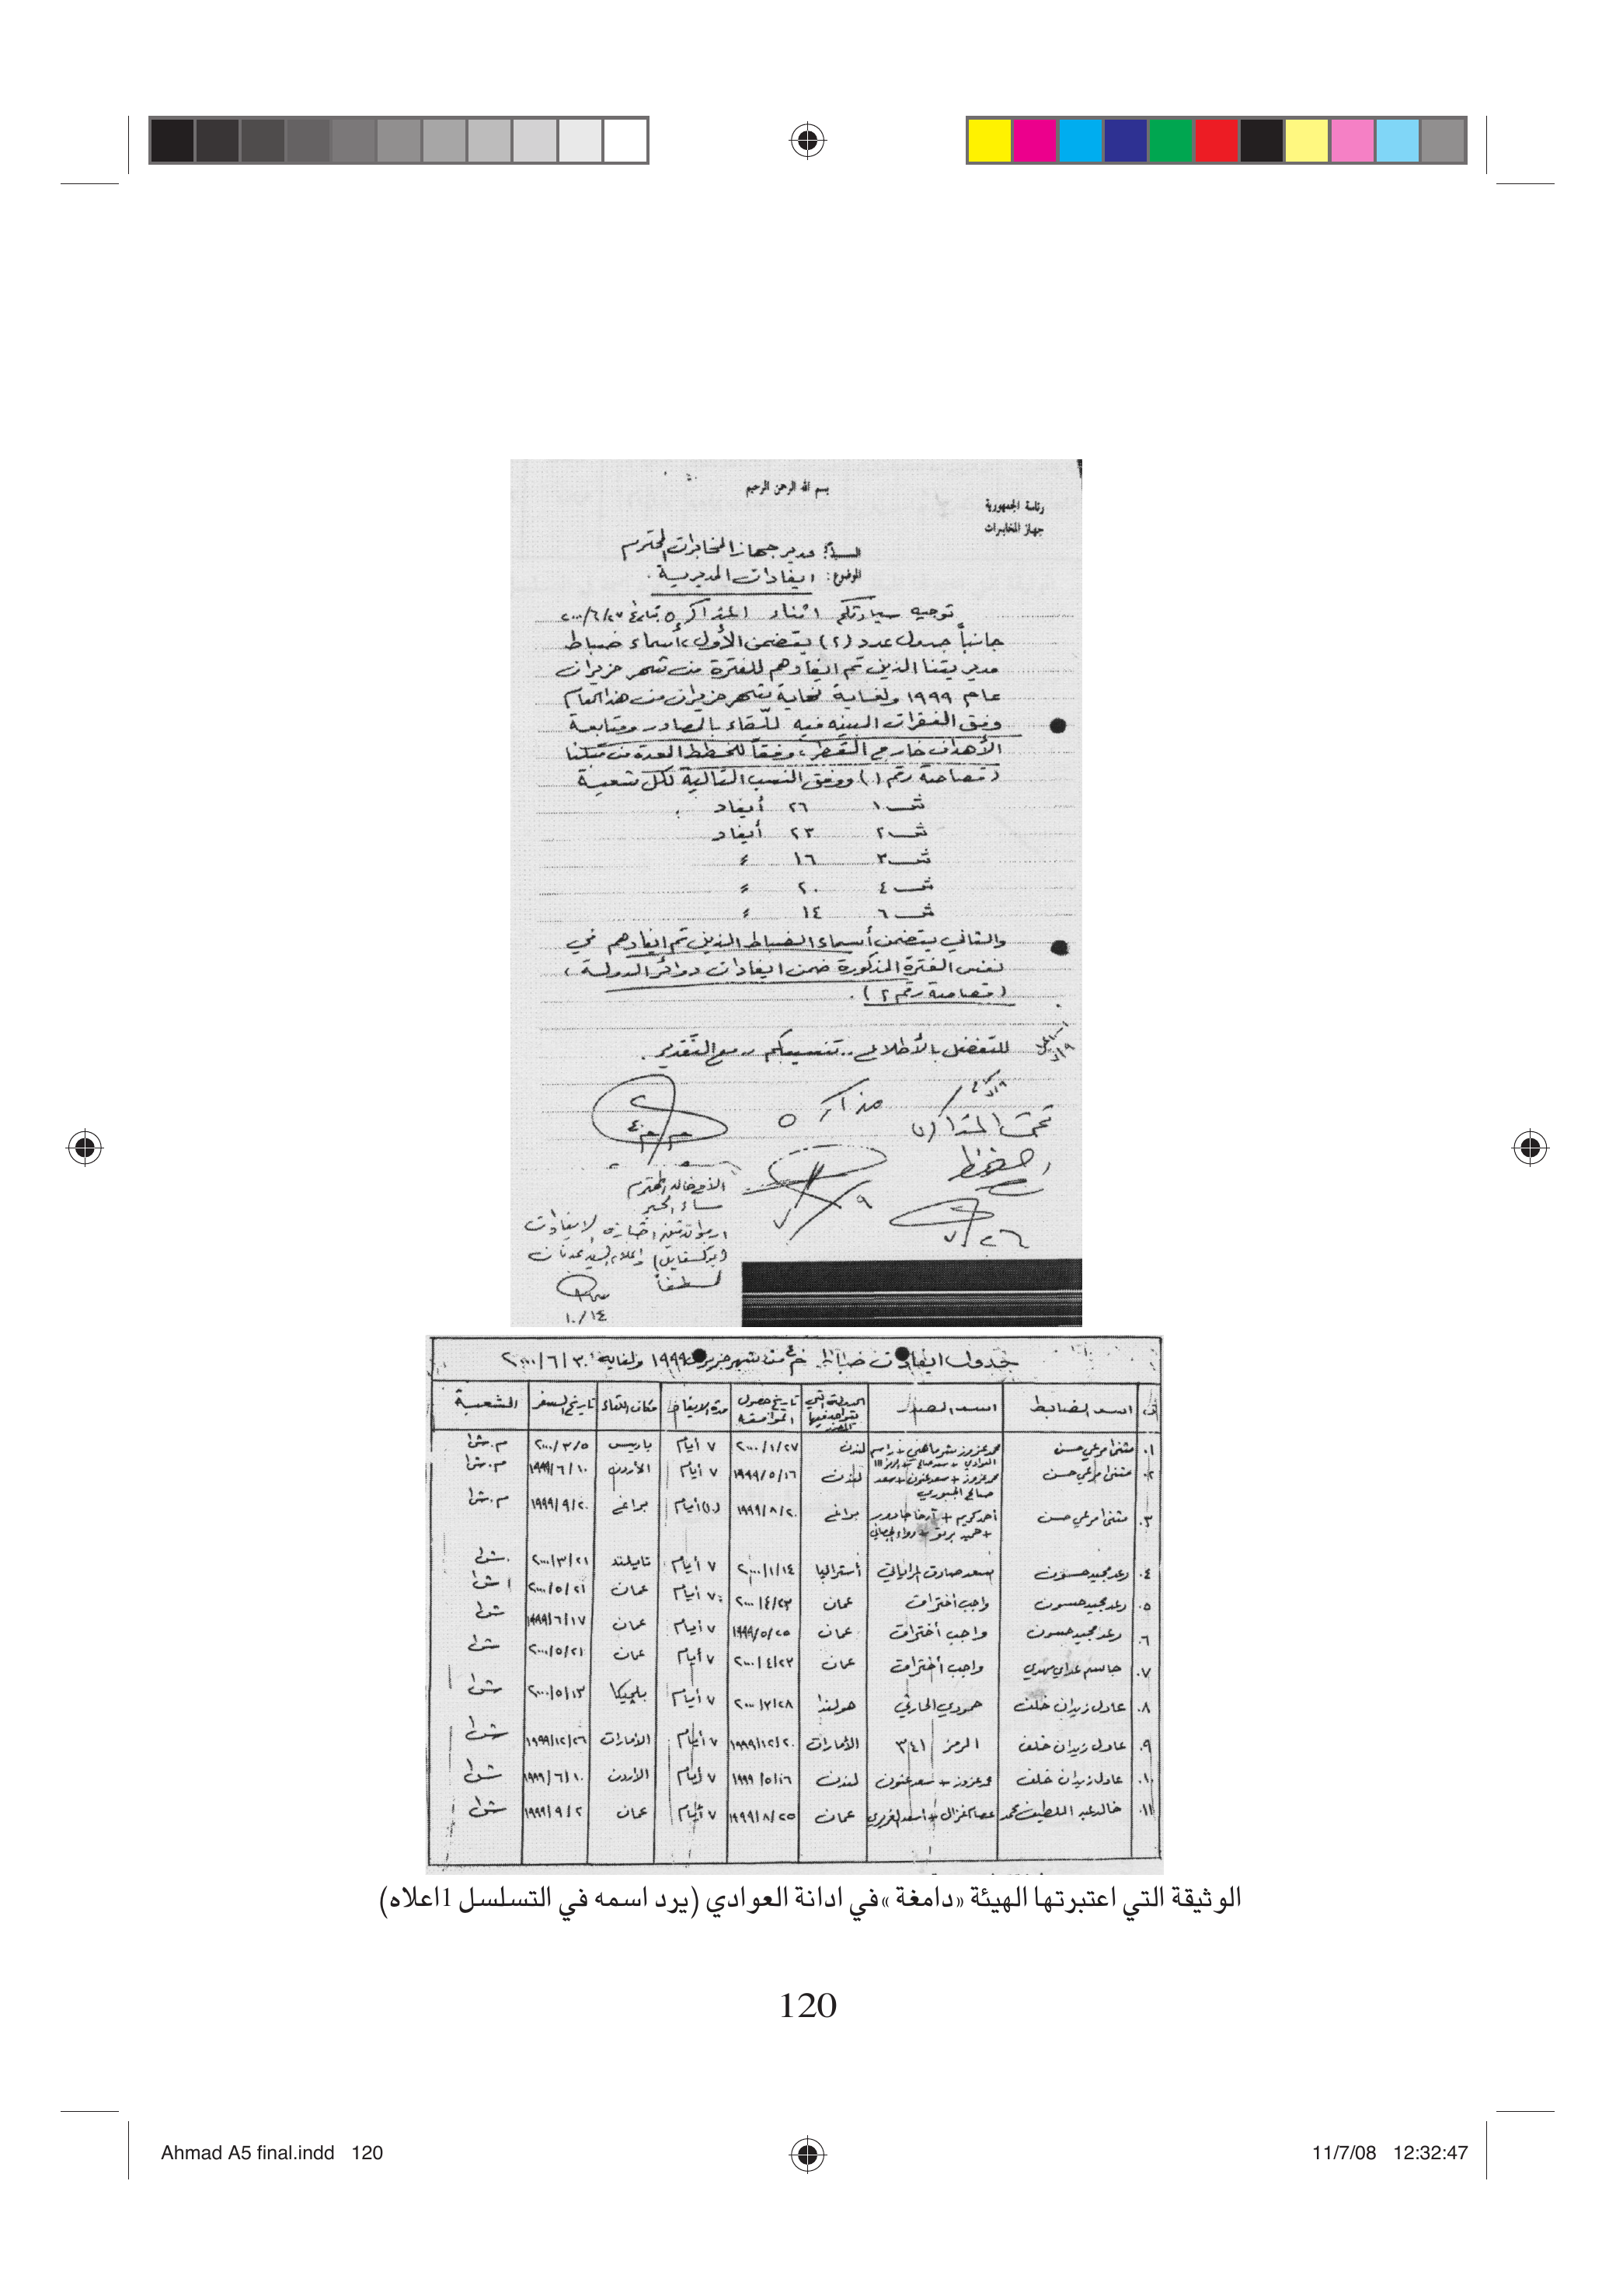 بسم الله الرحمن الرحيم
رئاسة الجمهورية
جهاز المخابرات
السيد مدير جهاز المخابرات المحترم
الموضوع: ايفادات المديرية .
توجيه سيادتكم اثناء المذاكرة بتاريخ ٢٠٠٠/٦/٢٧
جانباً جدول عدد (٢) يتضمن الأول، أسماء ضباط
مديريتنا الذين تم ايفادهم للفترة من شهر حزيران
عام ١٩٩٩ ولغاية نهاية شهر حزيران من هذا العام
وفق الفقرات المبينه فيه للقاء بالمصادر ومتابعة
الأهداف خارج القطر، وفقاً للخطط المعدة من قبلنا
(قصاصة رقم ١) ووفق النسب التالية لكل شعبة
ش١ ٢٦ أيفاد
ش٢ ٢٣ أيفاد
ش٣ ١٦ ء
ش٤ ٢٠ ء
ش٦ ١٤ ء
والثاني يتضمن أسماء الضباط الذين تم ايفادهم في
نفس الفترة المذكورة ضمن ايفادات دوائر الدولة ،
(قصاصة رقم ٢) .
للتفضل بالأطلاع .. تنسيبكم .. مع التقدير .
مذاكرة
تحت المذاكرة
الحفظ
٧/٩
٧/٢٦
الأخ خالد المحترم
مساء الخير
لطفاً
١٠/١٤
جدول ايفادات ضباط من شهر حزيران ١٩٩٩ ولغاية ٢٠٠٠/٦/٣٠
ت اسم الضابط اسم المصدر الدولة التي يتواجد فيها المصدر تاريخ حصول الموافقه مدة الايفاد مكان اللقاء تاريخ السفر الشعبة
٠١ مثنى مرعي حسن لندن ٢٠٠٠/١/٢٧ ٧ أيام باريس ٢٠٠٠/٣/٥ م.ش١
٠٢ مثنى مرعي حسن محمد عزوز + سعد عنون + سعد صالح الجبوري لندن ١٩٩٩/٥/١٦ ٧ أيام الأردن ١٩٩٩/٦/١٠ م.ش١
٠٣ مثنى مرعي حسن أحمد كريم + براغ ١٩٩٩/٨/٢٠ أيام براغ ١٩٩٩/٩/٢٠ م.ش١
٠٤ رعد مجيد حسون سعد صادق أستراليا ٢٠٠٠/١/١٤ ٧ أيام تايلند ٢٠٠٠/٣/٢١ ش١
٠٥ رعد مجيد حسون واجب أختراق عمان ٢٠٠٠/٤/٢٣ ٧ أيام عمان ٢٠٠٠/٥/٢١ ش١
٠٦ رعد مجيد حسون واجب أختراق عمان ١٩٩٩/٥/٢٥ ٧ أيام عمان ١٩٩٩/٦/١٧ ش١
٠٧ جاسم مهدي واجب أختراق عمان ٢٠٠٠/٤/٢٣ ٧ أيام عمان ٢٠٠٠/٥/٢١ ش١
٠٨ عادل زيدان خلف حمودي الحارثي هولندا ٢٠٠٠/٣/٢٨ ٧ أيام بلجيكا ٢٠٠٠/٥/١٣ ش١
٠٩ عادل زيدان خلف الرمز ٣٤١ الأمارات ١٩٩٩/١٢/٢٠ ٧ أيام الأمارات ١٩٩٩/١٢/٢٦ ش١
٠١٠ عادل زيدان خلف محمد عزوز + سعد عنون لندن ١٩٩٩/٥/١٦ ٧ أيام الأردن ١٩٩٩/٦/١٠ ش١
٠١١ خالد عبد اللطيف محمد عصام غزال + أسعد عمان ١٩٩٩/٨/٢٥ ٧ أيام عمان ١٩٩٩/٩/٢ ش١
الوثيقة التي اعتبرتها الهيئة «دامغة» في ادانة العوادي (يرد اسمه في التسلسل 1اعلاه)
120
Ahmad A5 final.indd 120
11/7/08 12:32:47